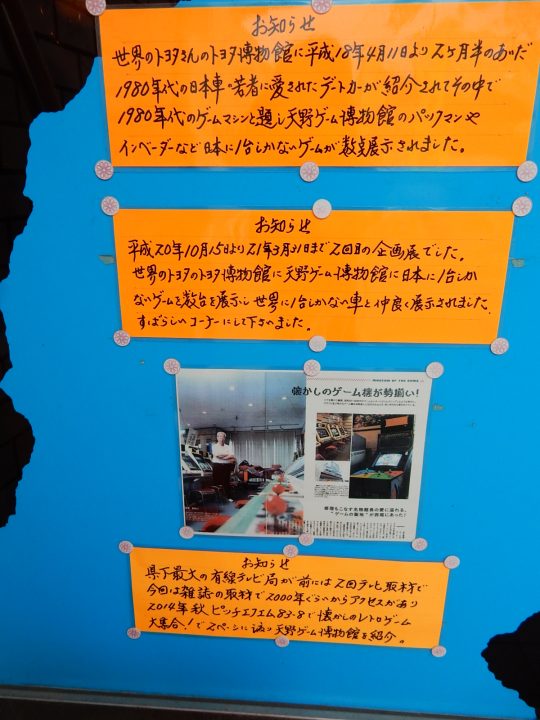 お知らせ
世界のトヨタさんのトヨタ博物館に平成18年4月11日より2ヶ月半のあいだ
1980年代の日本車の若者に愛されたデートカーが紹介されてその中で
1980年代のゲームマシンと題し天野ゲーム博物館のパックマンや
インベーダーなど日本に1台しかないゲームが数点展示されました。
お知らせ
平成20年10月15日より21年3月31日まで2回目の企画展でした。
世界のトヨタのトヨタ博物館に天野ゲーム博物館に日本に1台しか
ないゲームを数台を展示し世界に1台しかない車と仲良く展示されました。
すばらしいコーナーにして下さいました。
MUSEUM OF THE GAME
懐かしのゲーム機が勢揃い!
修理もこなす名物館長の愛に溢れる、
"ゲームの聖地"が西尾にあった!
お知らせ
県下最大の有線テレビ局が前には2回テレビ取材で
今回は雑誌の取材で2000年ぐらいからアクセスがあり
2014年秋、ピッチエフエム83.8で懐かしのレトロゲーム
大集合!で2ページに渡り天野ゲーム博物館を紹介。